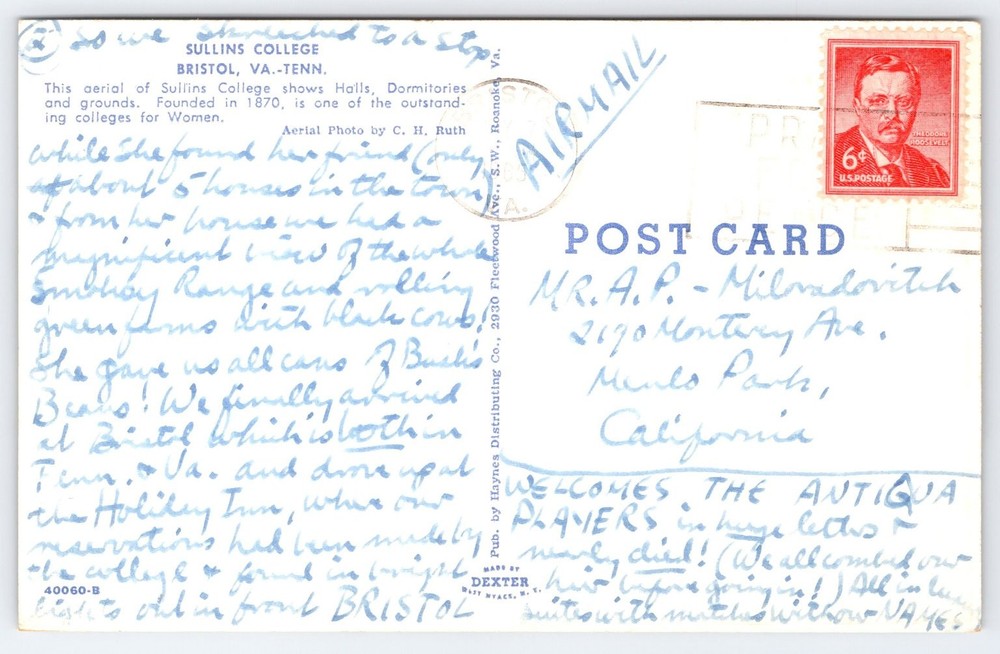 2 So we screeched to a stop
SULLINS COLLEGE
BRISTOL, VA.-TENN.
This aerial of Sullins College shows Halls, Dormitories
and grounds. Founded in 1870, is one of the outstand-
ing colleges for Women.
Aerial Photo by C. H. Ruth
while she found her friend (only
of about 5 houses in the town)
& from her house we had a
magnificent view of the whole
Smokey Range and rolling
green farms with black cows!
She gave us all cans of Bush's
Beans! We finally arrived
at Bristol which is both in
Tenn. & Va. and drove up at
the Holiday Inn, where our
reservations had been made by
the college & found in bright
lights out in front BRISTOL
40060-B
Pub. by Haynes Distributing Co., 2930 Fleetwood Ave., S.W., Roanoke, Va.
MADE BY
DEXTER
WEST NYACK, N. Y.
AIRMAIL
THEODORE
ROOSEVELT
6¢
U.S. POSTAGE
POST CARD
MR. A. P. - Milovadovitch
2190 Monterey Ave.
Menlo Park,
California
WELCOMES THE ANTIGUA
PLAYERS in huge letters &
nearly died! (We all combed our
hair before going in!) All in
suites with matches with our NAMES